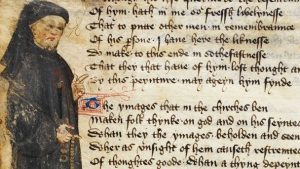 Of hym hath in me so fressh lyvelynesse
That to putte other men in remembraunce
Of his persone I have here the liknesse
Do make to this ende in sothfastnesse
That they that have of hym lost thought an
By this peynture may ayeyn hym fynde
The ymages that in the chirches ben
Maken folk thynke on god and on his seyntes
Whan they the ymages beholden and seen
Ther as unsight of hem causeth restreynte
Of thoughtes goode whan a thyng depeynt